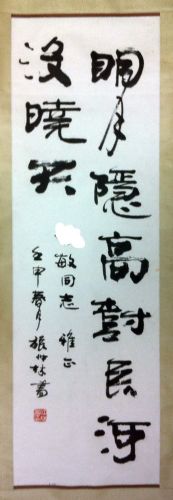 明月隱高樹長河
沒曉天
敏同志 雅正
壬申春月 書